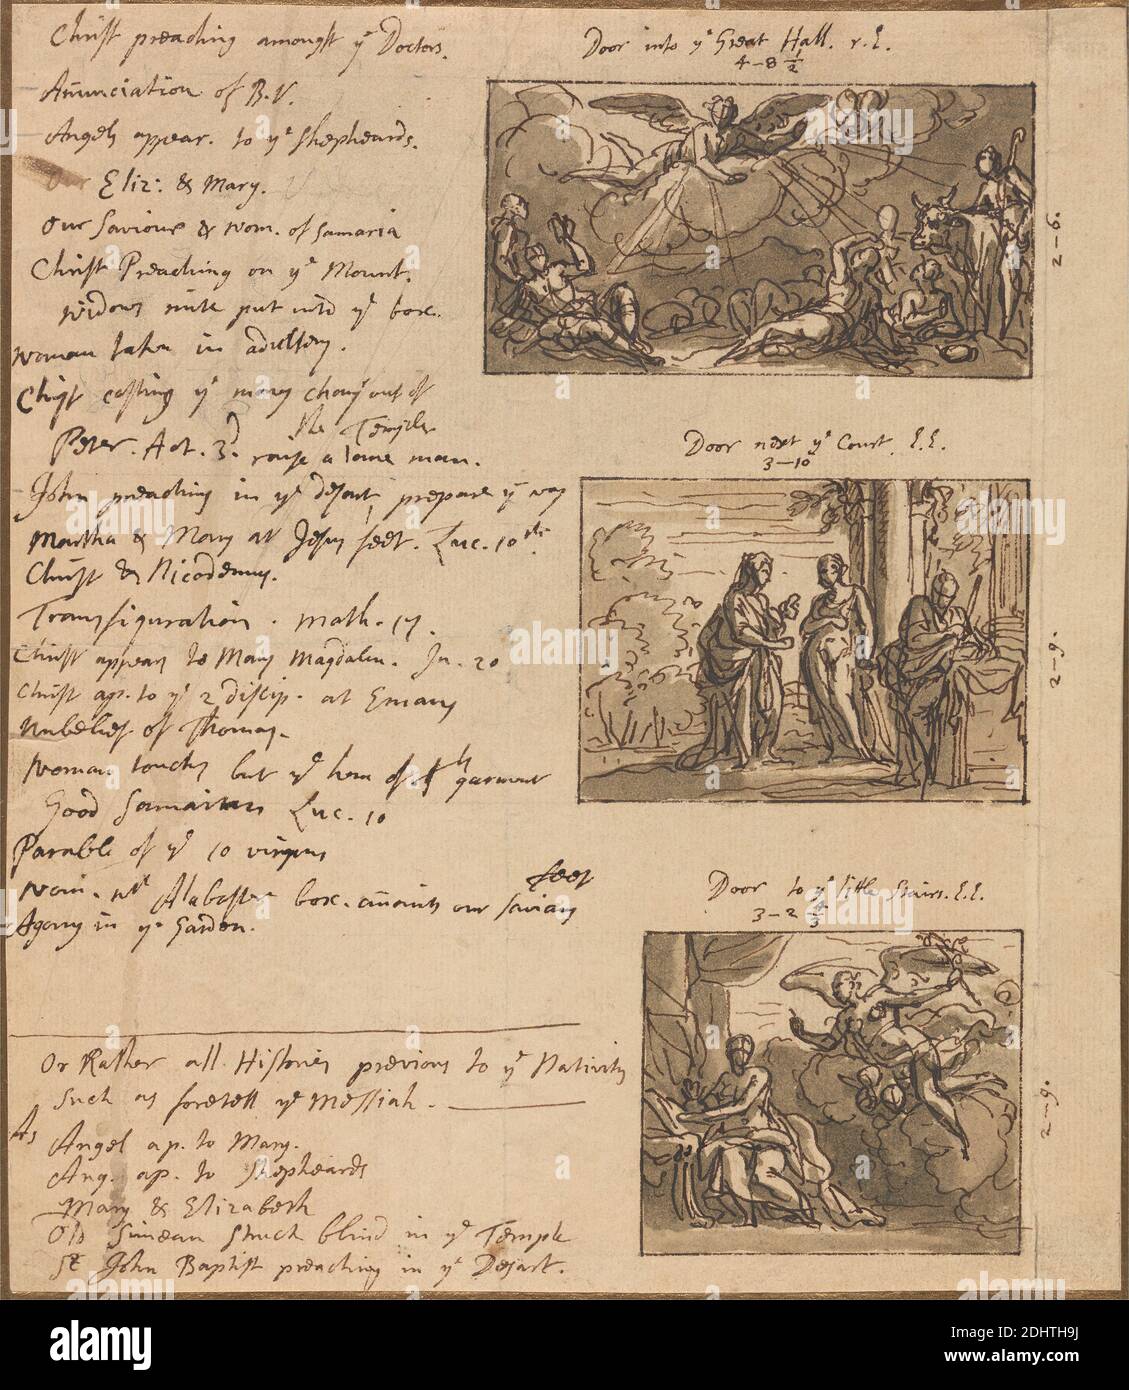 Christ preaching amongst yᵉ Doctors.
Anunciation of B.V.
Angels appear. to yᵉ shepheards.
Our Eliz: & Mary.
Our Saviour & wom. of Samaria
Christ Preaching on yᵉ Mount.
widows mite put into yᵉ box.
woman taken in adultery.
Christ casting yᵉ mony chang out of
the Temple
Peter. Act. 3ᵈ. raise a lame man.
John preaching in yᵉ desart, prepare yᵉ way
Martha & Mary at Jesus feet. Luc. 10ᵗʰ
Christ & Nicodemus.
Transfiguration. Math. 17.
Christ appears to Mary Magdalen. Jn. 20
Christ ap. to yᵉ 2 discip. at Emaus
Unbelief of Thomas.
Woman touches but yᵉ hem of garment
Good Samaritan Luc. 10
Parable of yᵉ 10 virgins
feet
Wom. wᵗʰ Alabaster box. anoints our saviours
Agony in yᵉ Garden.
Or Rather all Histories previous to yᵉ Nativity
Such as foretell yᵉ Messiah.
As
Angel ap. to Mary.
Ang. ap. to Shepheards
Mary & Elizabeth
Old Simean struck blind in yᵉ Temple
St John Baptist preaching in yᵉ Desart.
Door into yᵉ Great Hall. r.E.
4-8 1/2
2-6.
Door next yᵉ Court. E.E.
3-10
2-9.
Door to yᵉ little Stairs. E.E.
3-2
2-9.
alamy
Image ID: 2DHTH9J
www.alamy.com